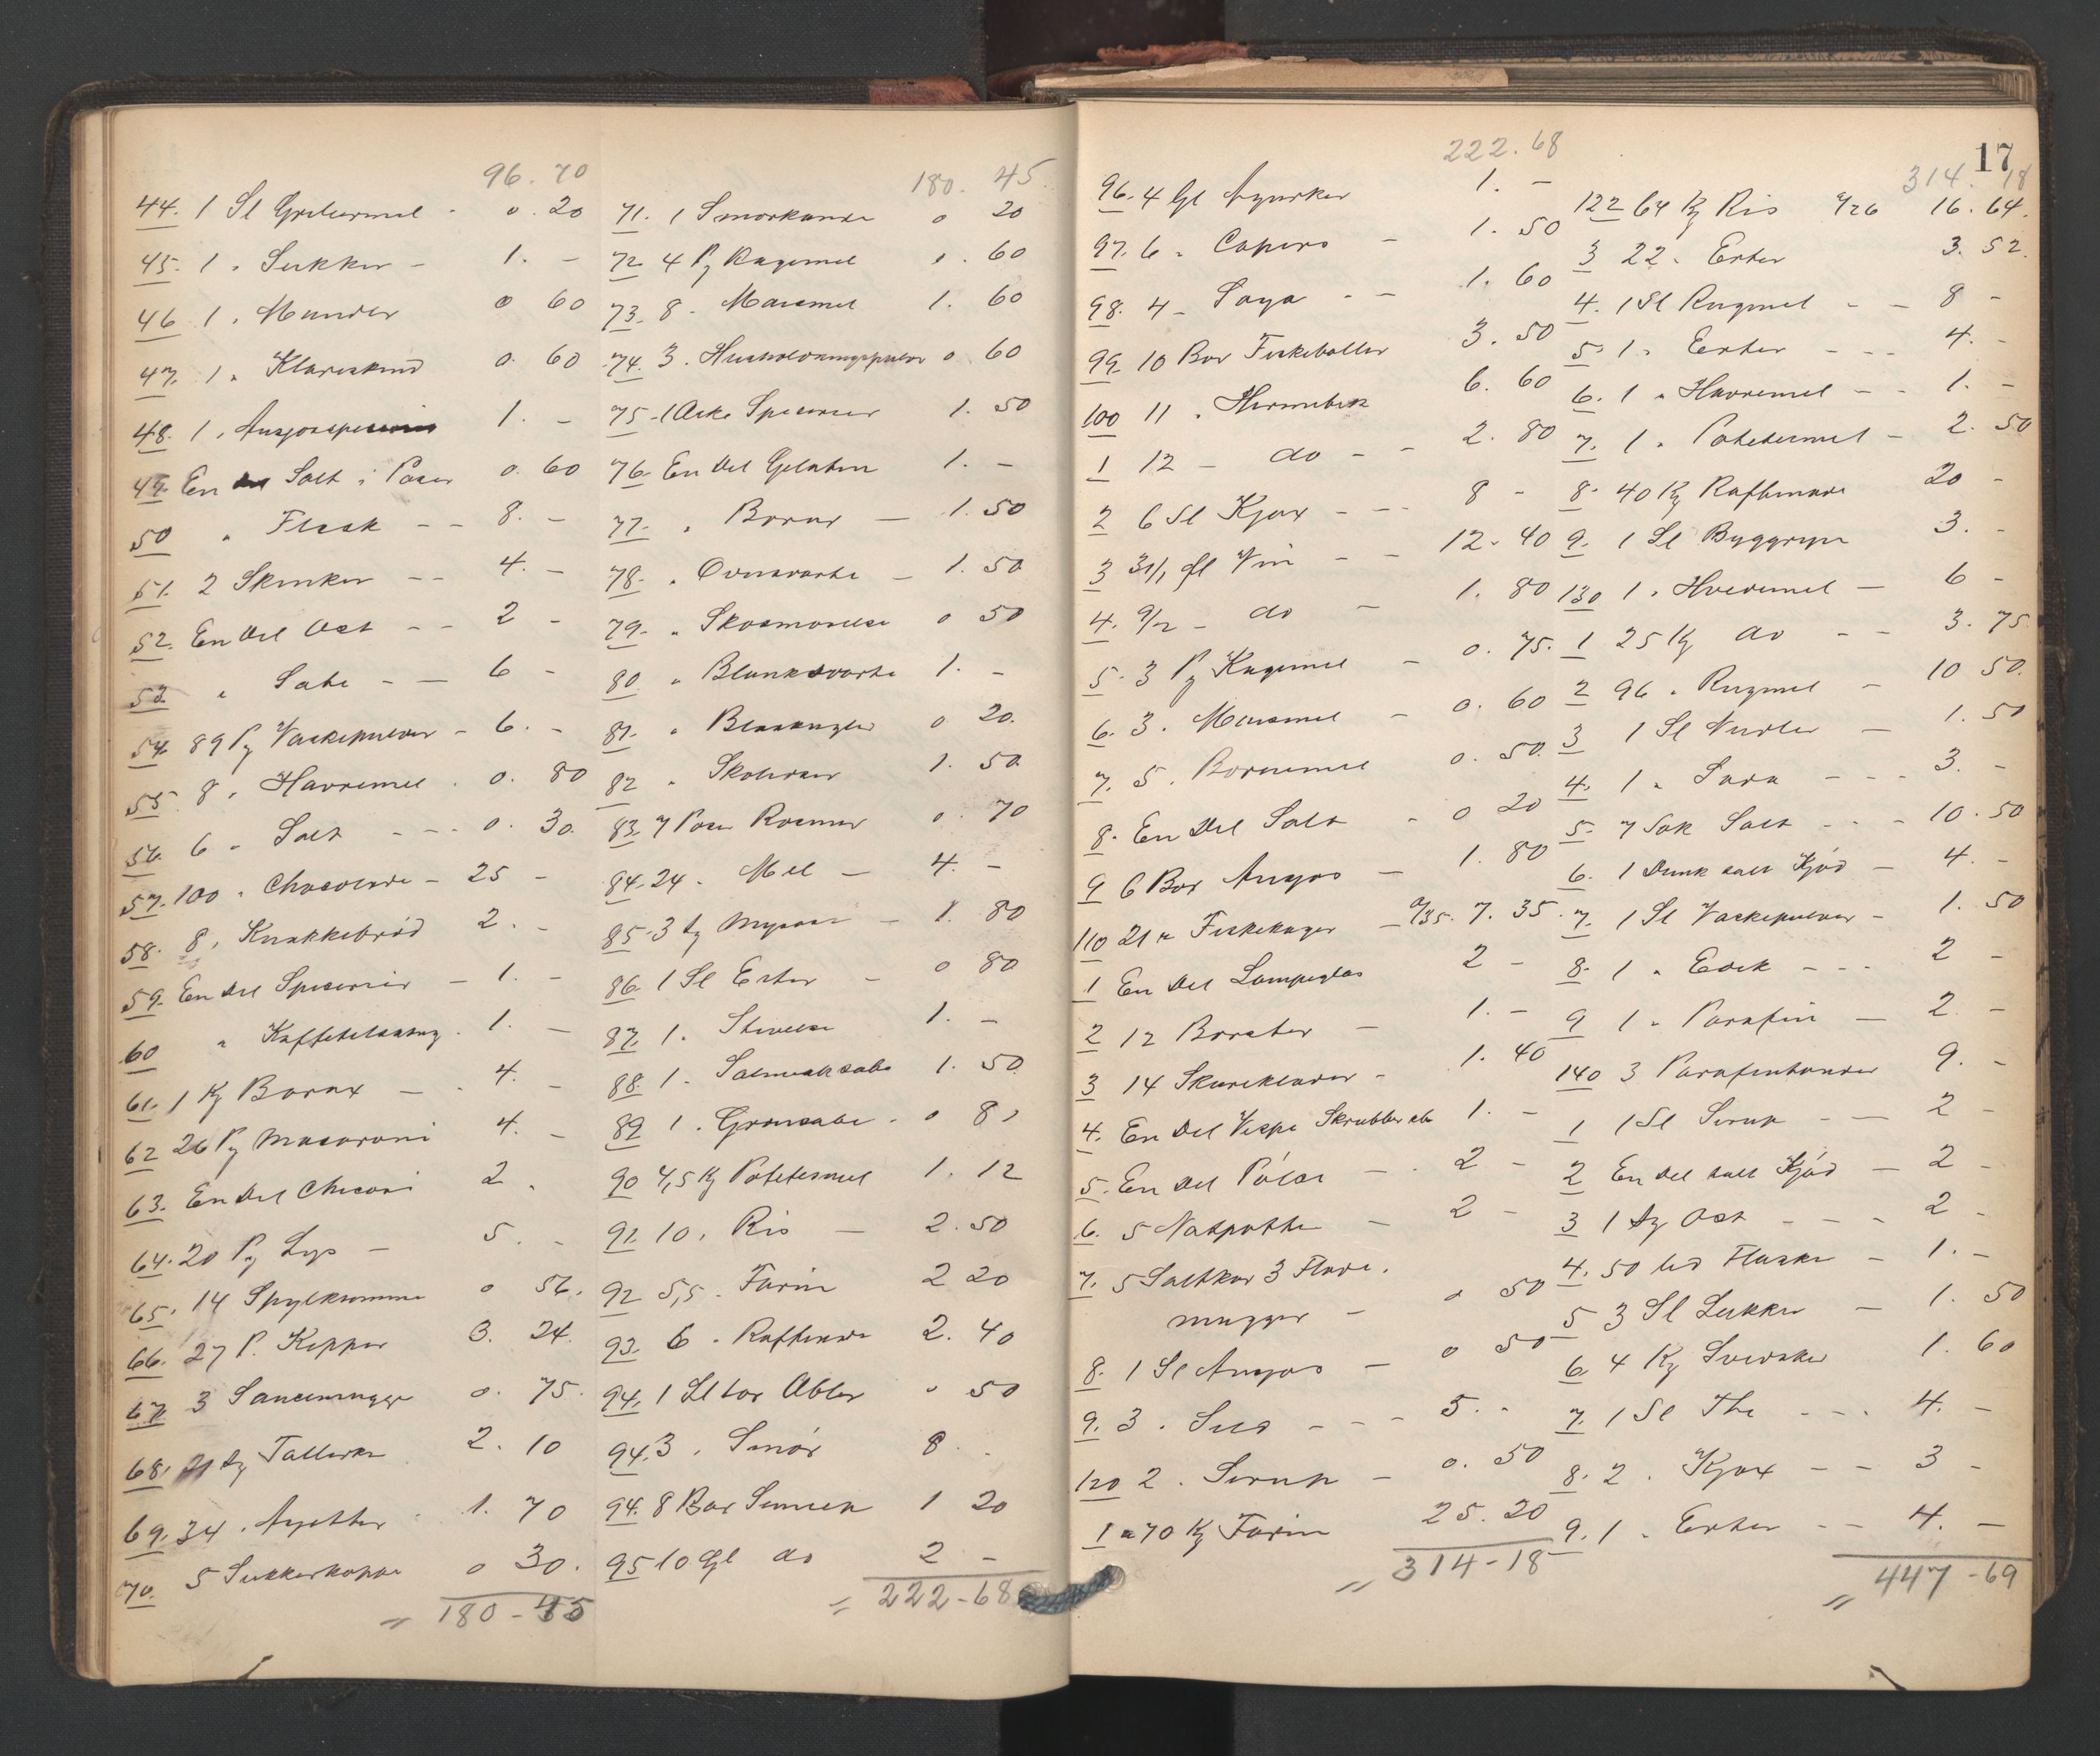 96.70
44. 1 Sl Gribermel - 0.20
45. 1 " Sukker - 1. -
46 1 " Mandler 0 60
47. 1 " Klareskind 0. 60
48. 1 " 1. -
49. En Salt i Poser 0. 60
50 " Flesk - - 8. -
51. 2 Skinker - - 4. -
52. En Del Ost - - 2 -
53. " Sæbe - - 6 -
54. 89 Pg Vaskepulver - 6. -
55. 8 " Havremel . 0. 80
56. 6 " Salt - - - 0. 30
57. 100 " Chocolade - 25 -
58. 8 " Knækkebrød 2. -
59. En Del Spiserier - 1. -
60 " Kaffetilsætng. 1. -
61. 1 Kg Borax - - 4. -
62 26 Pg Macaroni 4. -
63. En Del Checori 2 .
64. 20 Pg Lys - 5. -
65. 14 Spylkummer 0 56.
66. 27 P. Kopper 3. 24.
67. 3 Saucemugger 0. 75.
68. 21 Tallerker 2. 10
69. 34 " Asjetter 1. 70
70. 5 Sukkerkopper 0 30.
= 180-45
180. 45
71. 1 Smørkande 0 20
72. 4 Pg Kagemel 1. 60
73. 8 " Maismel 1. 60
74. 3 " Husholdningspulver 0 60
75. 1 Æske Speserier 1. 50
76. En Del Gelatin 1. -
77. " Borax - 1. 50
78. " Ovnsværte - 1. 50
79. " Skosmørelse 0 50
80. " Blanksværte 1. -
81. " Blaakugler 0 20.
82 " 1. 50
83. 7 Poser Rosiner 0. 70
84. 24 " Mel - 4. -
85. 3 Mysost - 1. 80
86. 1 Sl Erter - 0 80
87. 1 " Stivelse 1. -
88. 1 " Salmiaksæbe 1. 50
89 1 " Grønsæbe . 0 80
90 4,5 Kg Potetesmel 1. 12
91. 10 " Ris - 2. 50
92 5,5 " Farin 2 20
93. 6 " Raffinade 2. 40
94. 1 Sl tør Æbler 0 50
94. 3 " Smør 8. -
94. 8 Box Sennep 1 20
95 10 Gl do 2 -
= 222-68
17
222.68
96. 4 Gl Agurker 1. -
97. 6 " Capers - 1. 50
98. 4 " Soya - - 1. 60
99. 10 Box Fiskeboller 3. 50
100 11 " Hermetik 6. 60
1 12 - do - - 2. 80
2 6 Sl Kjax - - - 8 -
3 31/1 fl Vin - - 12. 40
4. 9/2 - do - 1. 80
5. 3 Pg Kagemel - 0. 75.
6. 3 " Maismel - 0. 60
7. 5 " Bornemel 0. 50.
8. En Del Salt - 0 20
9 6 Box Ansjos - 1. 80
110 21 " Fiskekager - a/35. 7. 35.
1 En Del Lampeglas 2 -
2 12 Børster - 1. -
3 14 Skureklude - 1. 40
4. En Del Visper Skrubber etc 1. -
5. En Del Pólse - . 2 -
6. 5 Natpotte - 2 -
7. 5 Saltkar 3 Fløde.
mugger - 0 50
8. 1 Sl Ansjos - 0 50
9. 3 " Sild - - - 5. .
120 2 " Sirup - 0. 50
1 a 70 Kg Farin 25. 20
= 314-18
314. 18
122 64 Kg Ris a/26 16. 64.
3 22 " Erter 3. 52.
4. 1 Sl Rugmel - - 8 -
5. 1 " Erter - - - 4. -
6. 1 " Havremel - - 1. -
7. 1 " Potetesmel - 2. 50
8. 40 Kg Raffinade 20 -
9. 1 Sl Byggryn 3. -
130 1 " Hvedemel - 6 -
1 25 Kg do - - 3. 75
2 96 " Rugmel - 10 50.
3 1 Sl Nudler - 1. 50
4. 1 " Soda - - - 3. -
5. 7 Sæk Salt - - - 10. 50
6. 1 Dunk salt Kjød - 4. -
7. 1 Sl Vaskepulver - 1. 50
8. 1 " Edik - - - 2 -
9 1 " Parafin - 2. -
140 3 Parafinkander 9. -
1 1 Sl Sirup - - 2 -
2 En Del salt Kjød - 2 -
3 1 Ost - - - 2 -
4. 50 led Flasker - 1. -
5 3 Sl Sukker - 1. 50
6 4 Kg Svedsker 1. 60
7. 1 Sl The - - - 4. -
8. 2 " Kjax - - 3 -
9. 1 " Erter - - 4. -
= 447-69